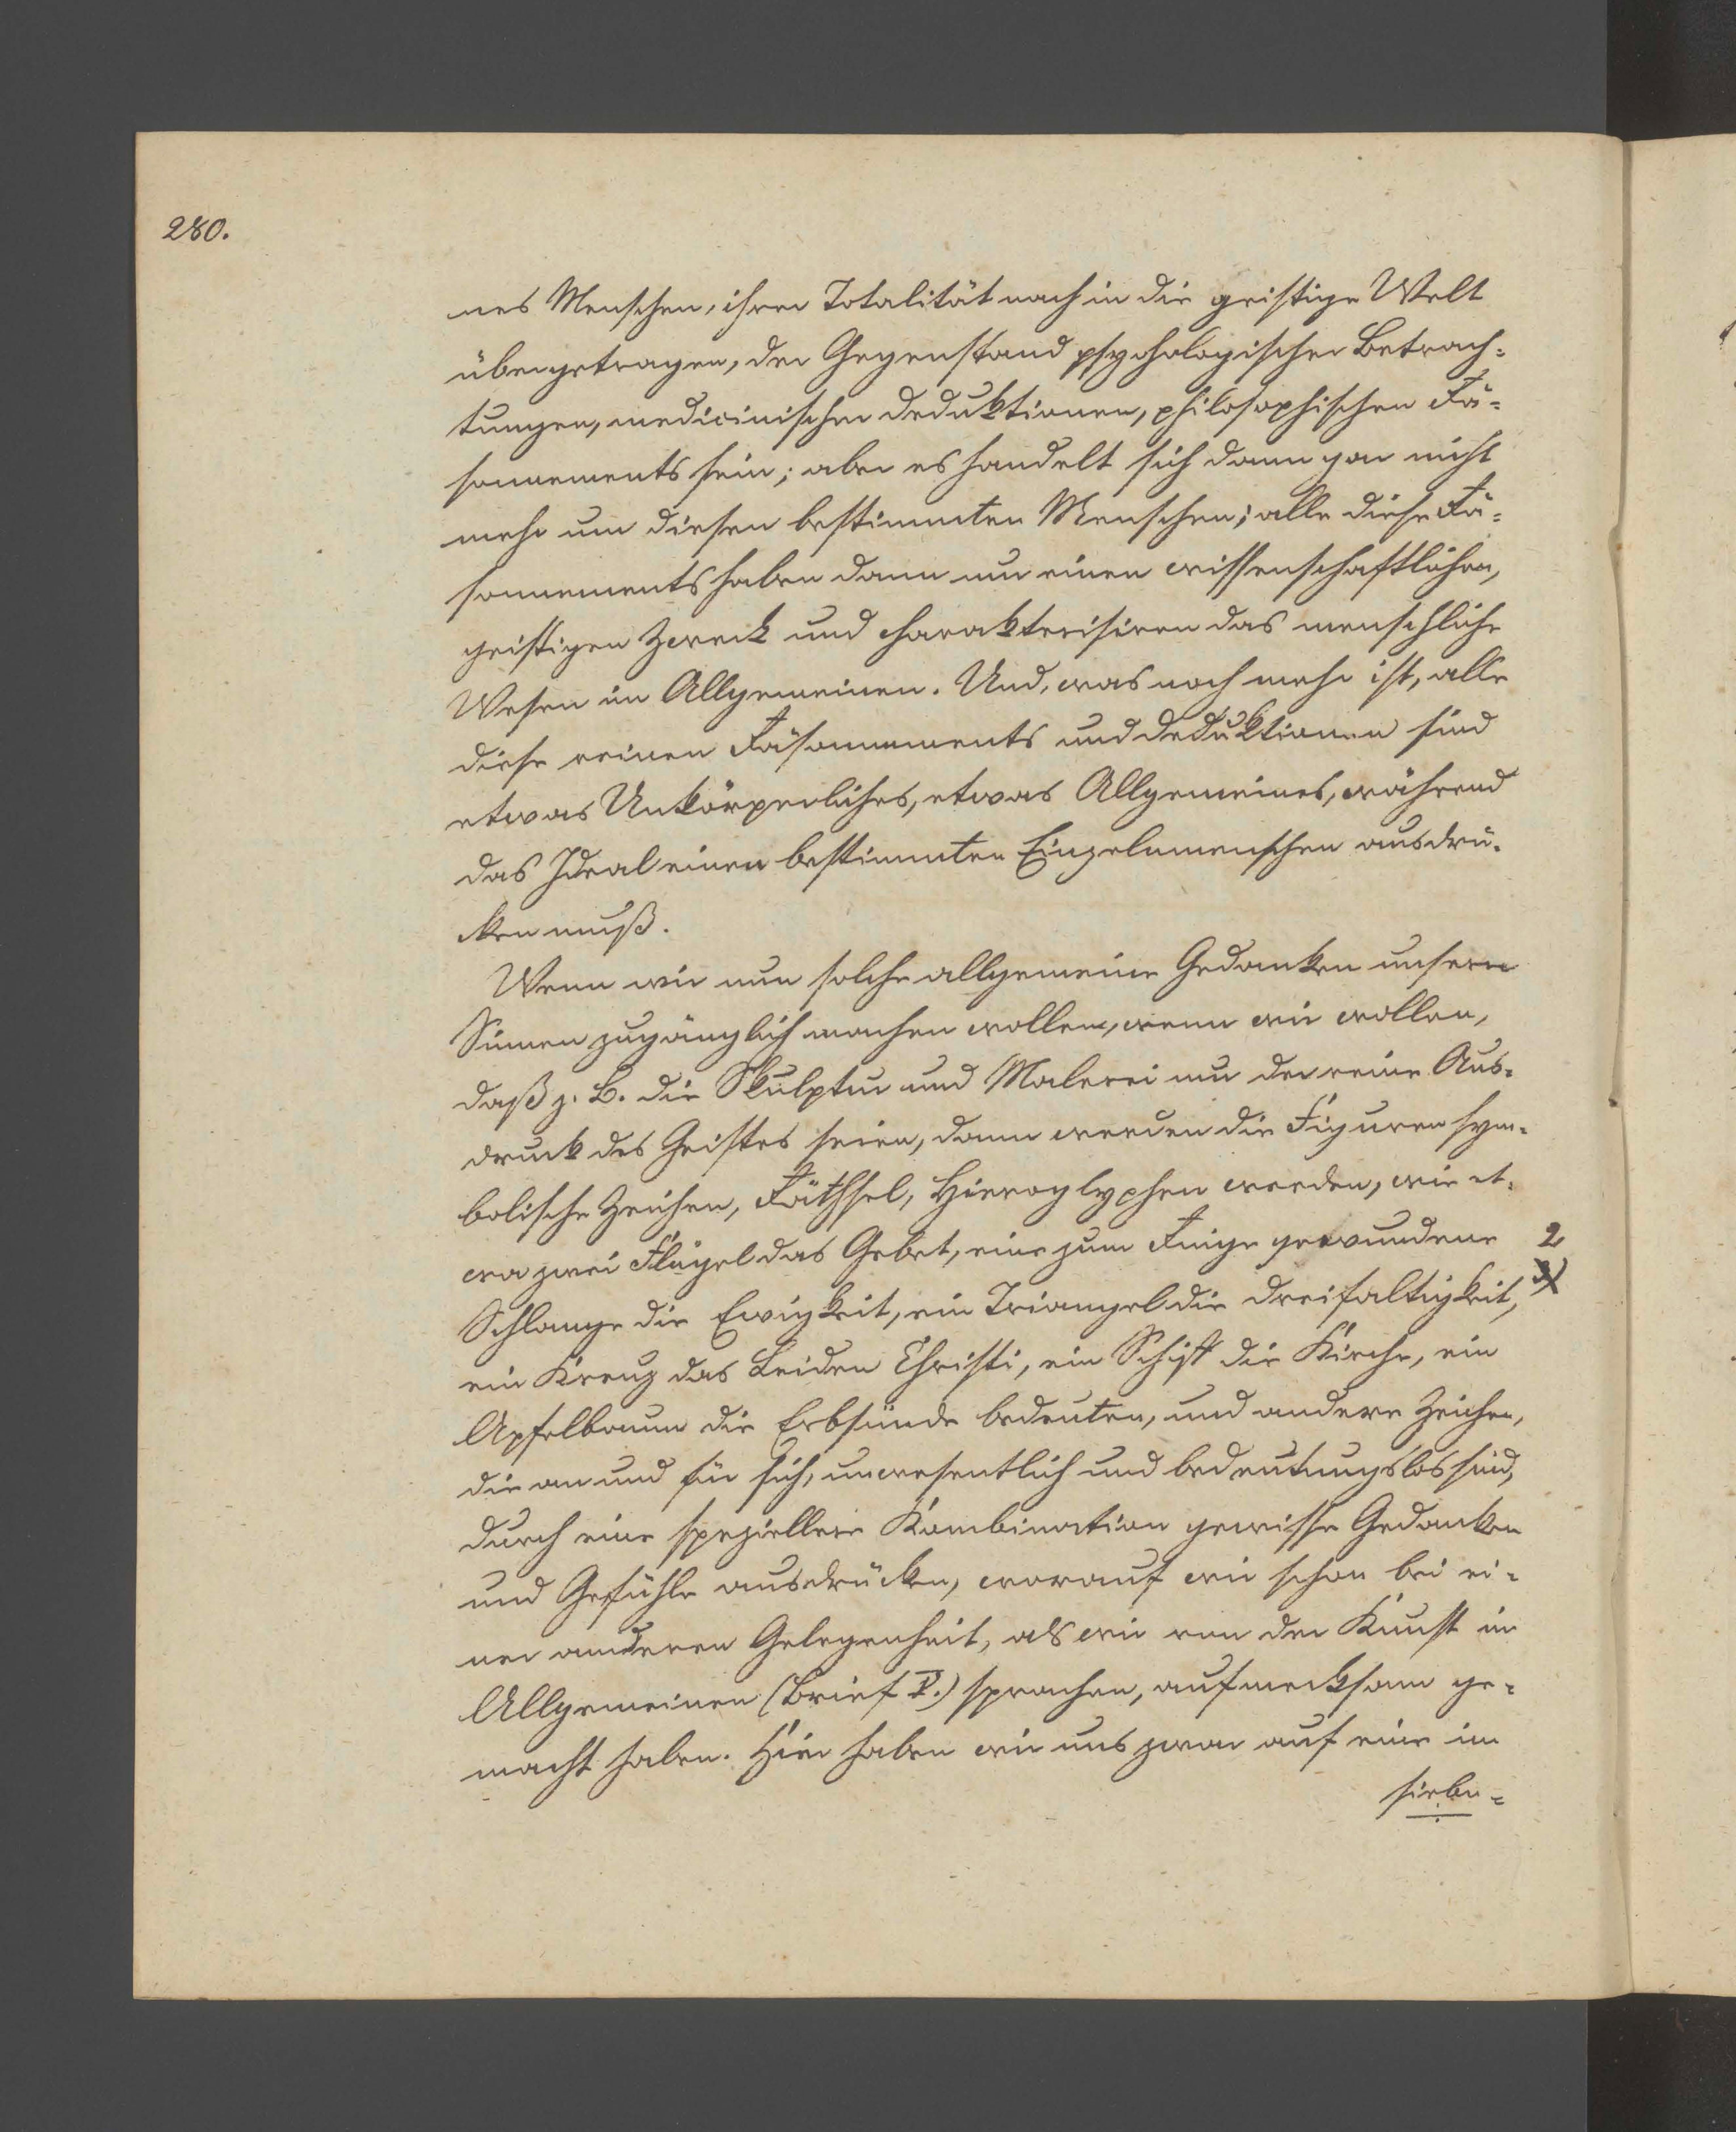 280.
nes Menschen, ihrer Totalität nach in die geistige Welt
übergetragen, der Gegenstand psychologischer Betrach=
tungen, medicinischer Deduktionen, philosophischen Rä=
sonnements sein; aber es handelt sich dann gar nicht
mehr um diesen bestimmten Menschen; alle diese Rä=
sonnements haben dann nur einen wissenschaftlichen,
geistigen Zweck und charakterisiren das menschliche
Wesen im Allgemeinen. Und, was noch mehr ist, alle
diese reinen Räsonnements und Deduktionen sind
etwas Unkörperliches, etwas Allgemeines, während
das Ideal einen bestimmten Einzelnmenschen ausdrü=
cken muß.
Wenn wir nun solche allgemeine Gedanken unsern
Sinnen zugänglich machen wollen, wenn wir wollen,
daß z. B. die Skulptur und Malerei nur der reine Aus=
druck des Geistes seien, dann werden die Figuren sym=
bolische Zeichen, Räthsel, Hieroglyphen werden, wie et=
wa zwei Flügel das Gebet, eine zum Ringe gewundene
2
Schlange die Ewigkeit, ein Triangel die Dreifaltigkeit,
ein Kreuz das Leiden Christi, ein Schiff die Kirche, ein
Apfelbaum die Erbsünde bedeuten, und andere Zeichen,
die an und für sich, unwesentlich und bedeutungslos sind,
durch eine speziellere Kombination gewisse Gedanken
und Gefühle ausdrücken, worauf wir schon bei ei=
ner anderen Gelegenheit, als wir von der Kunst im
Allgemeinen (Brief V.) sprachen, aufmerksam ge=
macht haben. Hier haben wir uns zwar auf eine im
sieben=